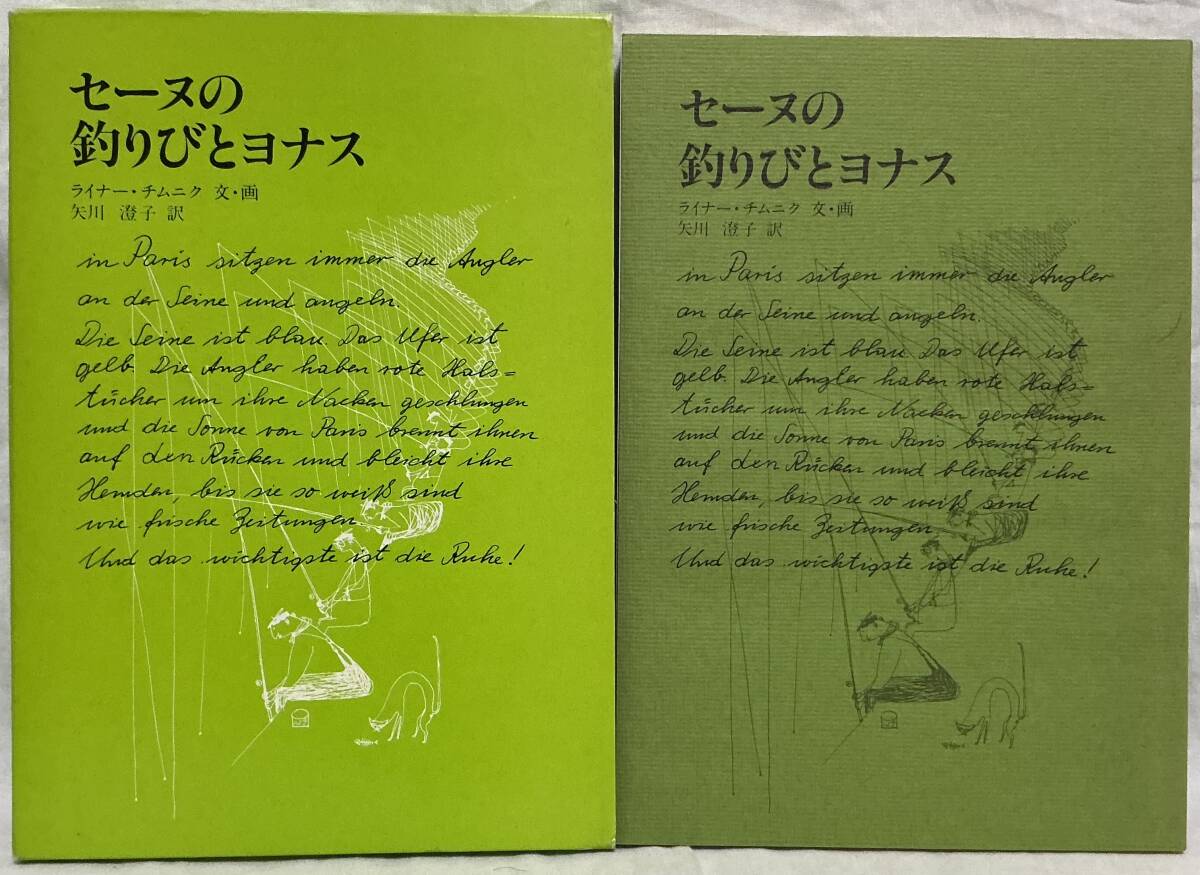 セーヌの
釣りびとヨナス
ライナー・チムニク 文・画
矢川 澄子 訳
in Paris sitzen immer die Angler
an der Seine und angeln.
Die Seine ist blau. Das Ufer ist
gelb. Die Angler haben rote Hals=
tücher um ihre Nacken geschlungen
und die Sonne von Paris brennt ihnen
auf den Rücken und bleicht ihre
Hemden, bis sie so weiß sind
wie frische Zeitungen.
Und das wichtigste ist die Ruhe!
セーヌの
釣りびとヨナス
ライナー・チムニク 文・画
矢川 澄子 訳
in Paris sitzen immer die Angler
an der Seine und angeln.
Die Seine ist blau. Das Ufer ist
gelb. Die Angler haben rote Hals=
tücher um ihre Nacken geschlungen
und die Sonne von Paris brennt ihnen
auf den Rücken und bleicht ihre
Hemden, bis sie so weiß sind
wie frische Zeitungen.
Und das wichtigste ist die Ruhe!